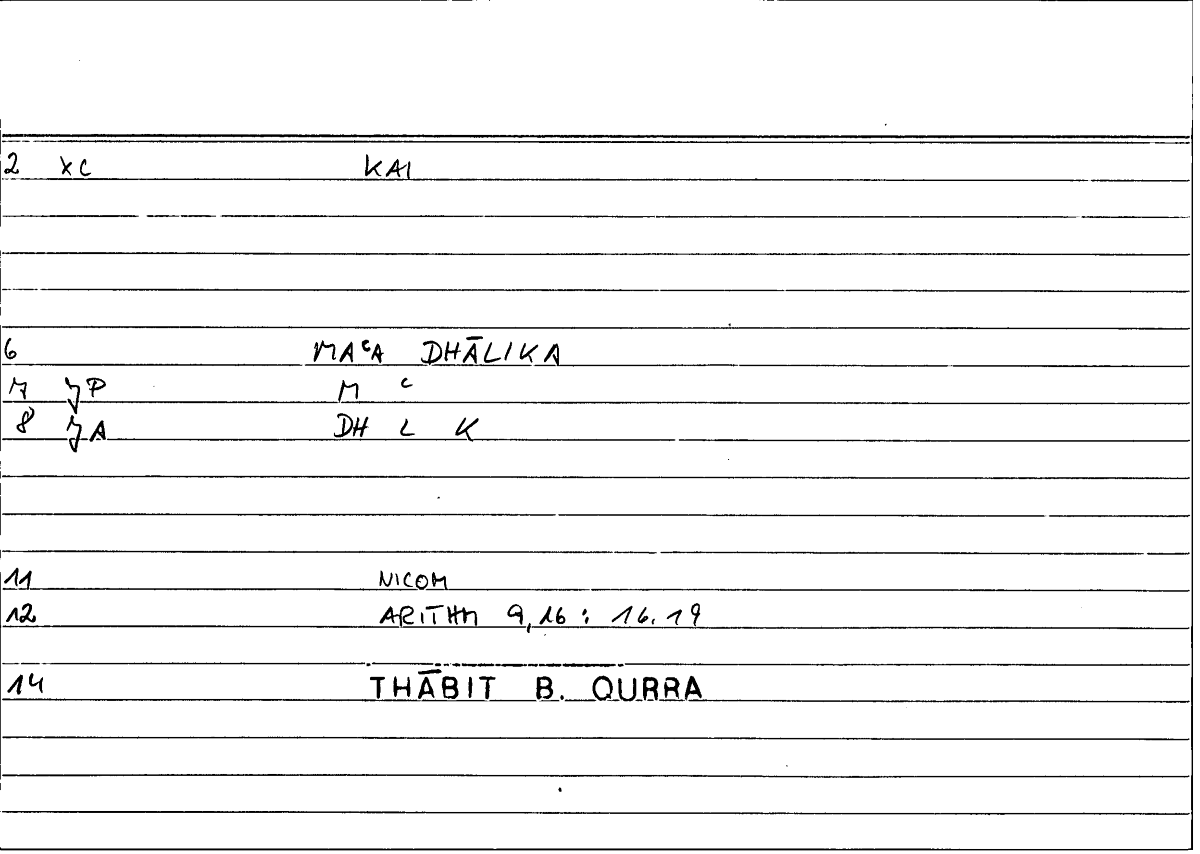 2 XC KAI
6 MAʿA DHĀLIKA
7 JP M ʿ
8 JA DH L K
11 NICOM
12 ARITHM 9,16 : 16.19
14 THĀBIT B. QURRA